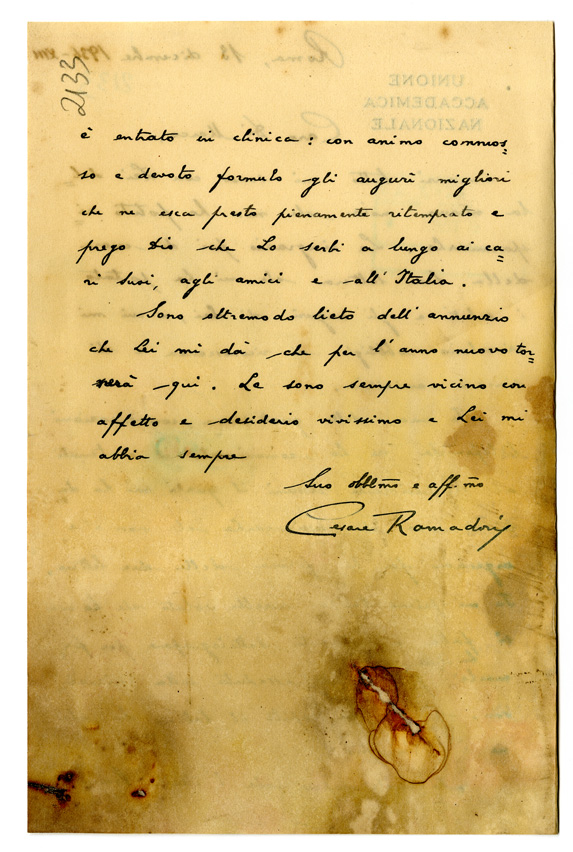 2133
è entrato in clinica: con animo commos=
so e devoto formulo gli auguri migliori
che ne esca presto pienamente ritemprato e
prego Dio che Lo serbi a lungo ai ca=
ri suoi, agli amici e all'Italia.
Sono oltremodo lieto dell'annunzio
che Lei mi dà che per l'anno nuovo tor=
nerà qui. Le sono sempre vicino con
affetto e desiderio vivissimo e Lei mi
abbia sempre
Suo obbl.mo e aff.mo
Cesare Ramadori
Roma, 13 dicembre 1934-XIII
UNIONE
ACCADEMICA
NAZIONALE